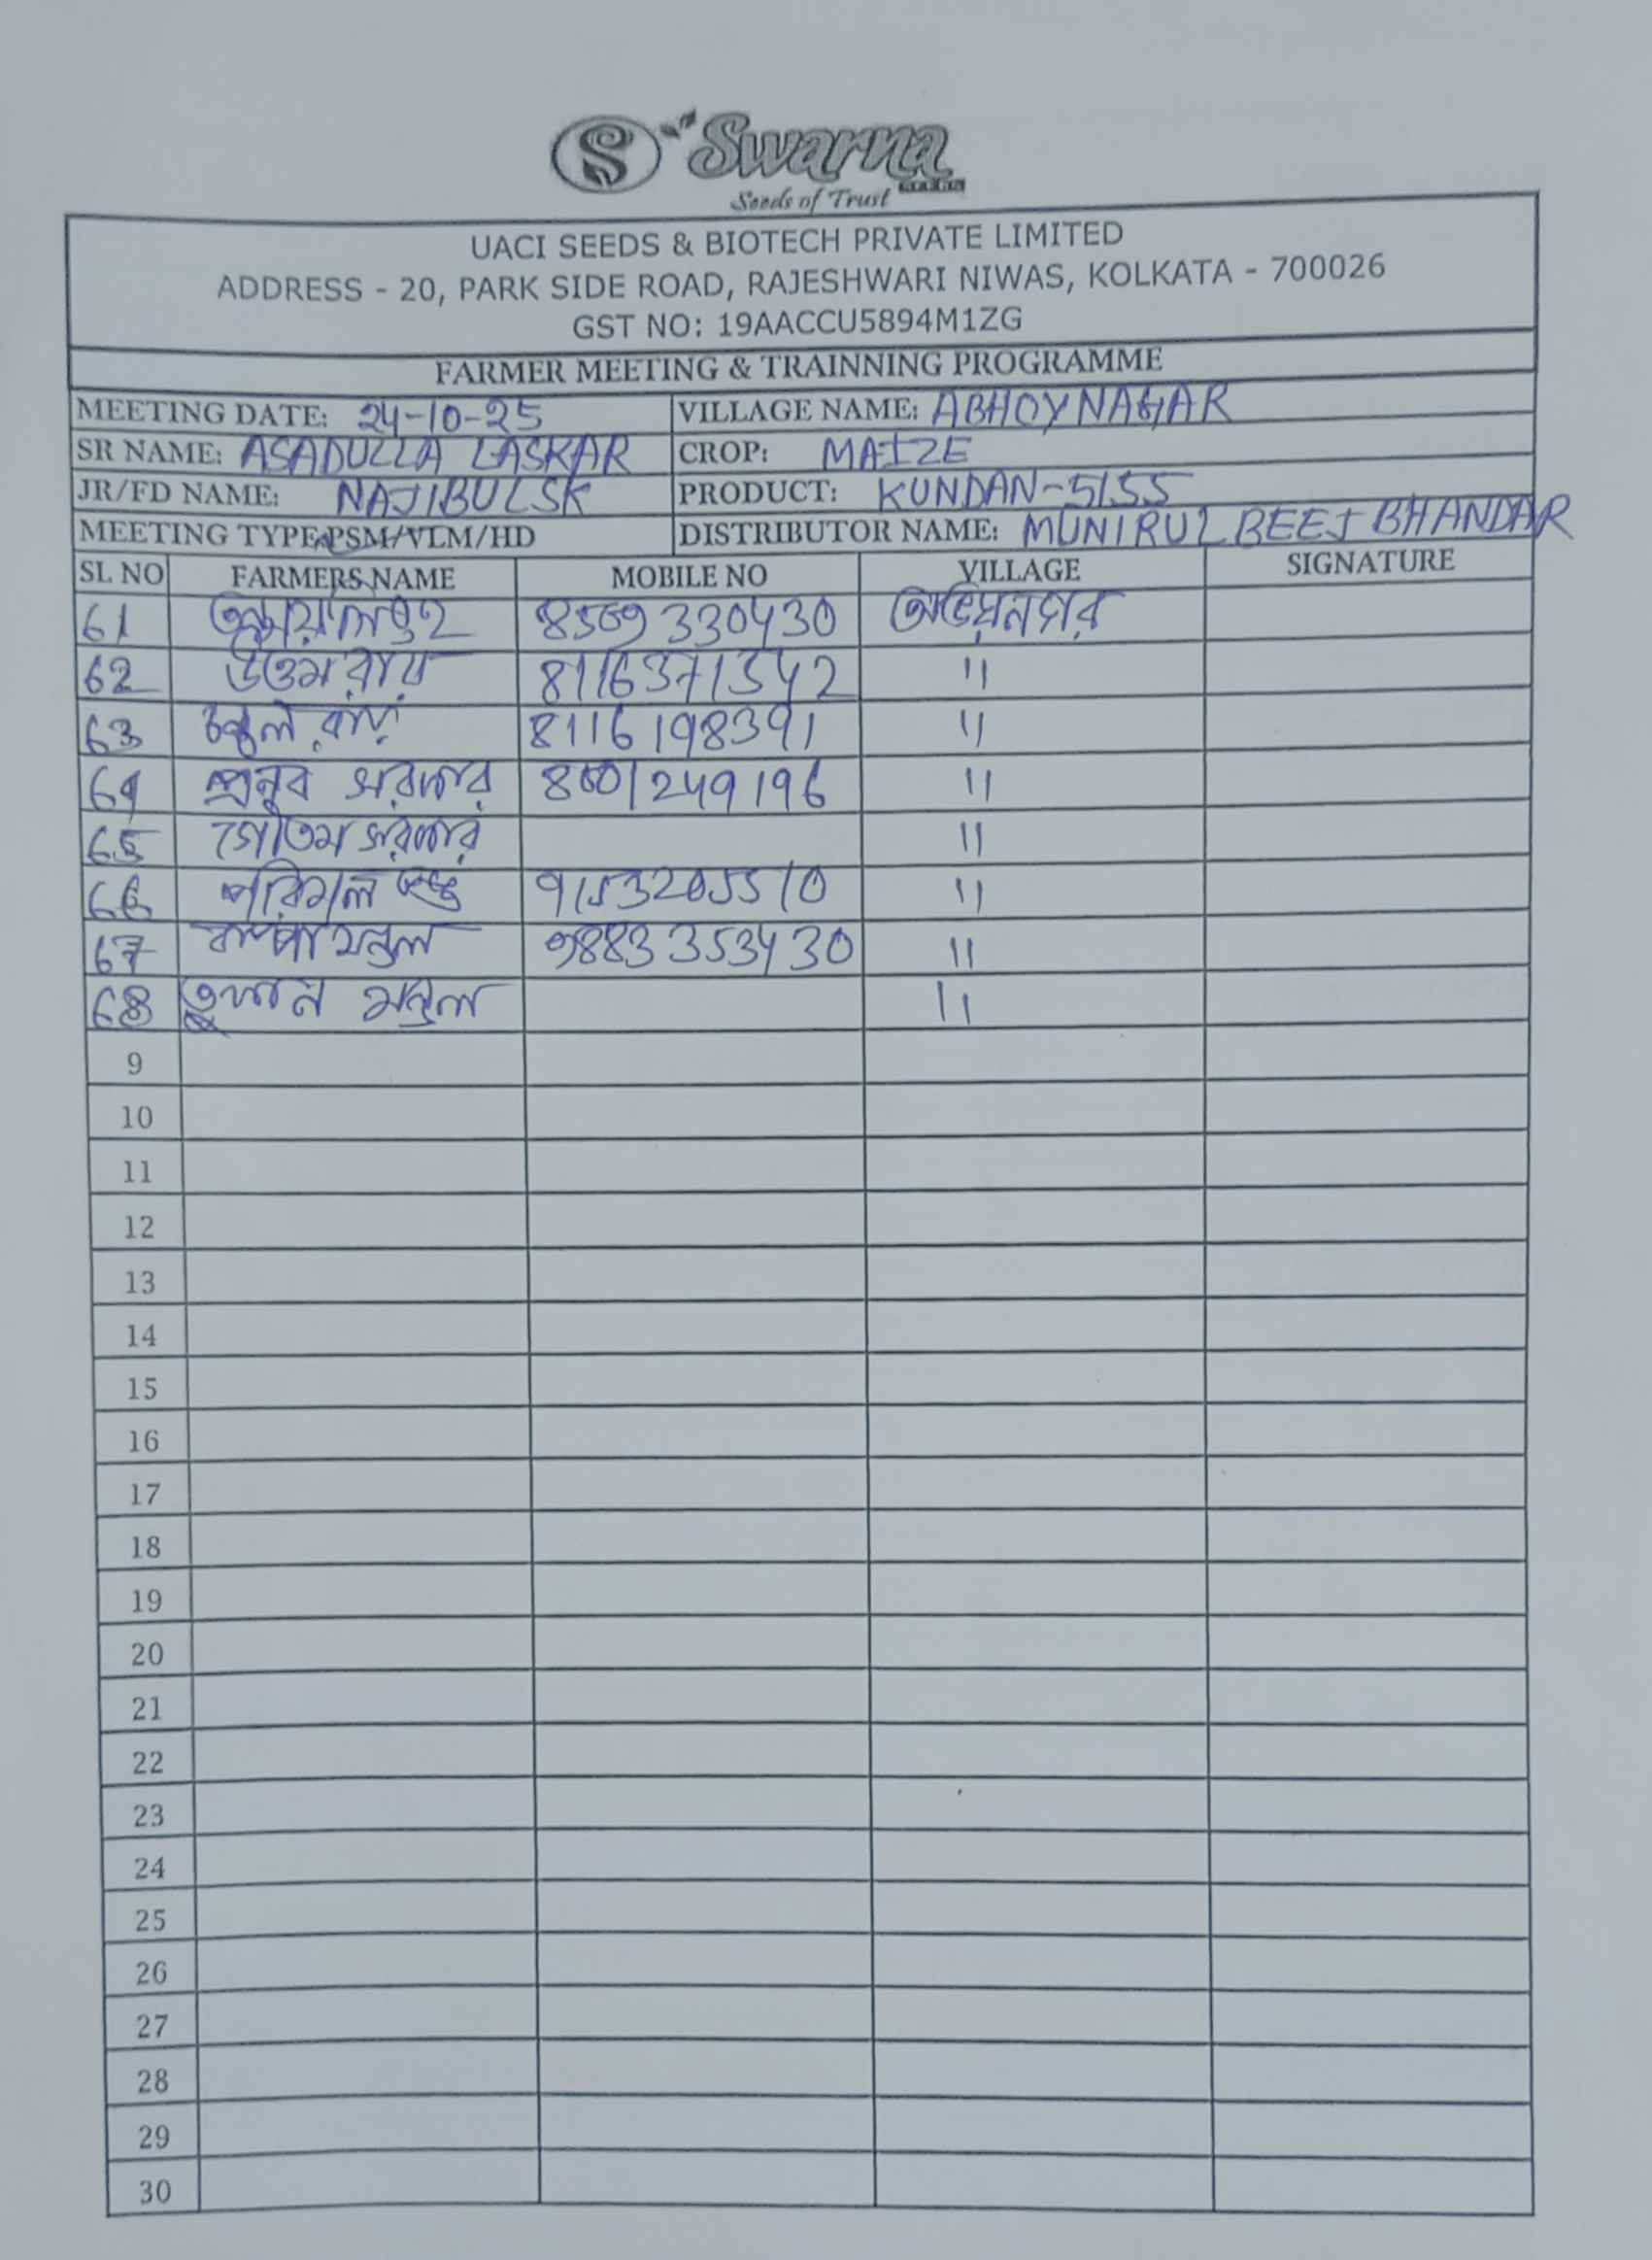 S Swarna
Seeds of Trust
UACI SEEDS & BIOTECH PRIVATE LIMITED
ADDRESS - 20, PARK SIDE ROAD, RAJESHWARI NIWAS, KOLKATA - 700026
GST NO: 19AACCU5894M1ZG
FARMER MEETING & TRAINNING PROGRAMME
MEETING DATE: 24-10-25 VILLAGE NAME: ABHOYNAGAR
SR NAME: ASADULLA LASKAR CROP: MAIZE
JR/FD NAME: NAJIBUL SK PRODUCT: KUNDAN-5155
MEETING TYPE: PSM/VLM/HD DISTRIBUTOR NAME: MUNIRUL BEEJ BHANDAR
SL NO FARMERS NAME MOBILE NO VILLAGE SIGNATURE
61 8509330430
62 উত্তম রায় 8116371342 "
63 রায় 8116198391 "
64 প্রনব সরকার 8001249196 "
65 গৌতম সরকার "
66 পরিমল 9153205510 "
67 মন্ডল 9883353430 "
68 তুফান মন্ডল "
9
10
11
12
13
14
15
16
17
18
19
20
21
22
23
24
25
26
27
28
29
30